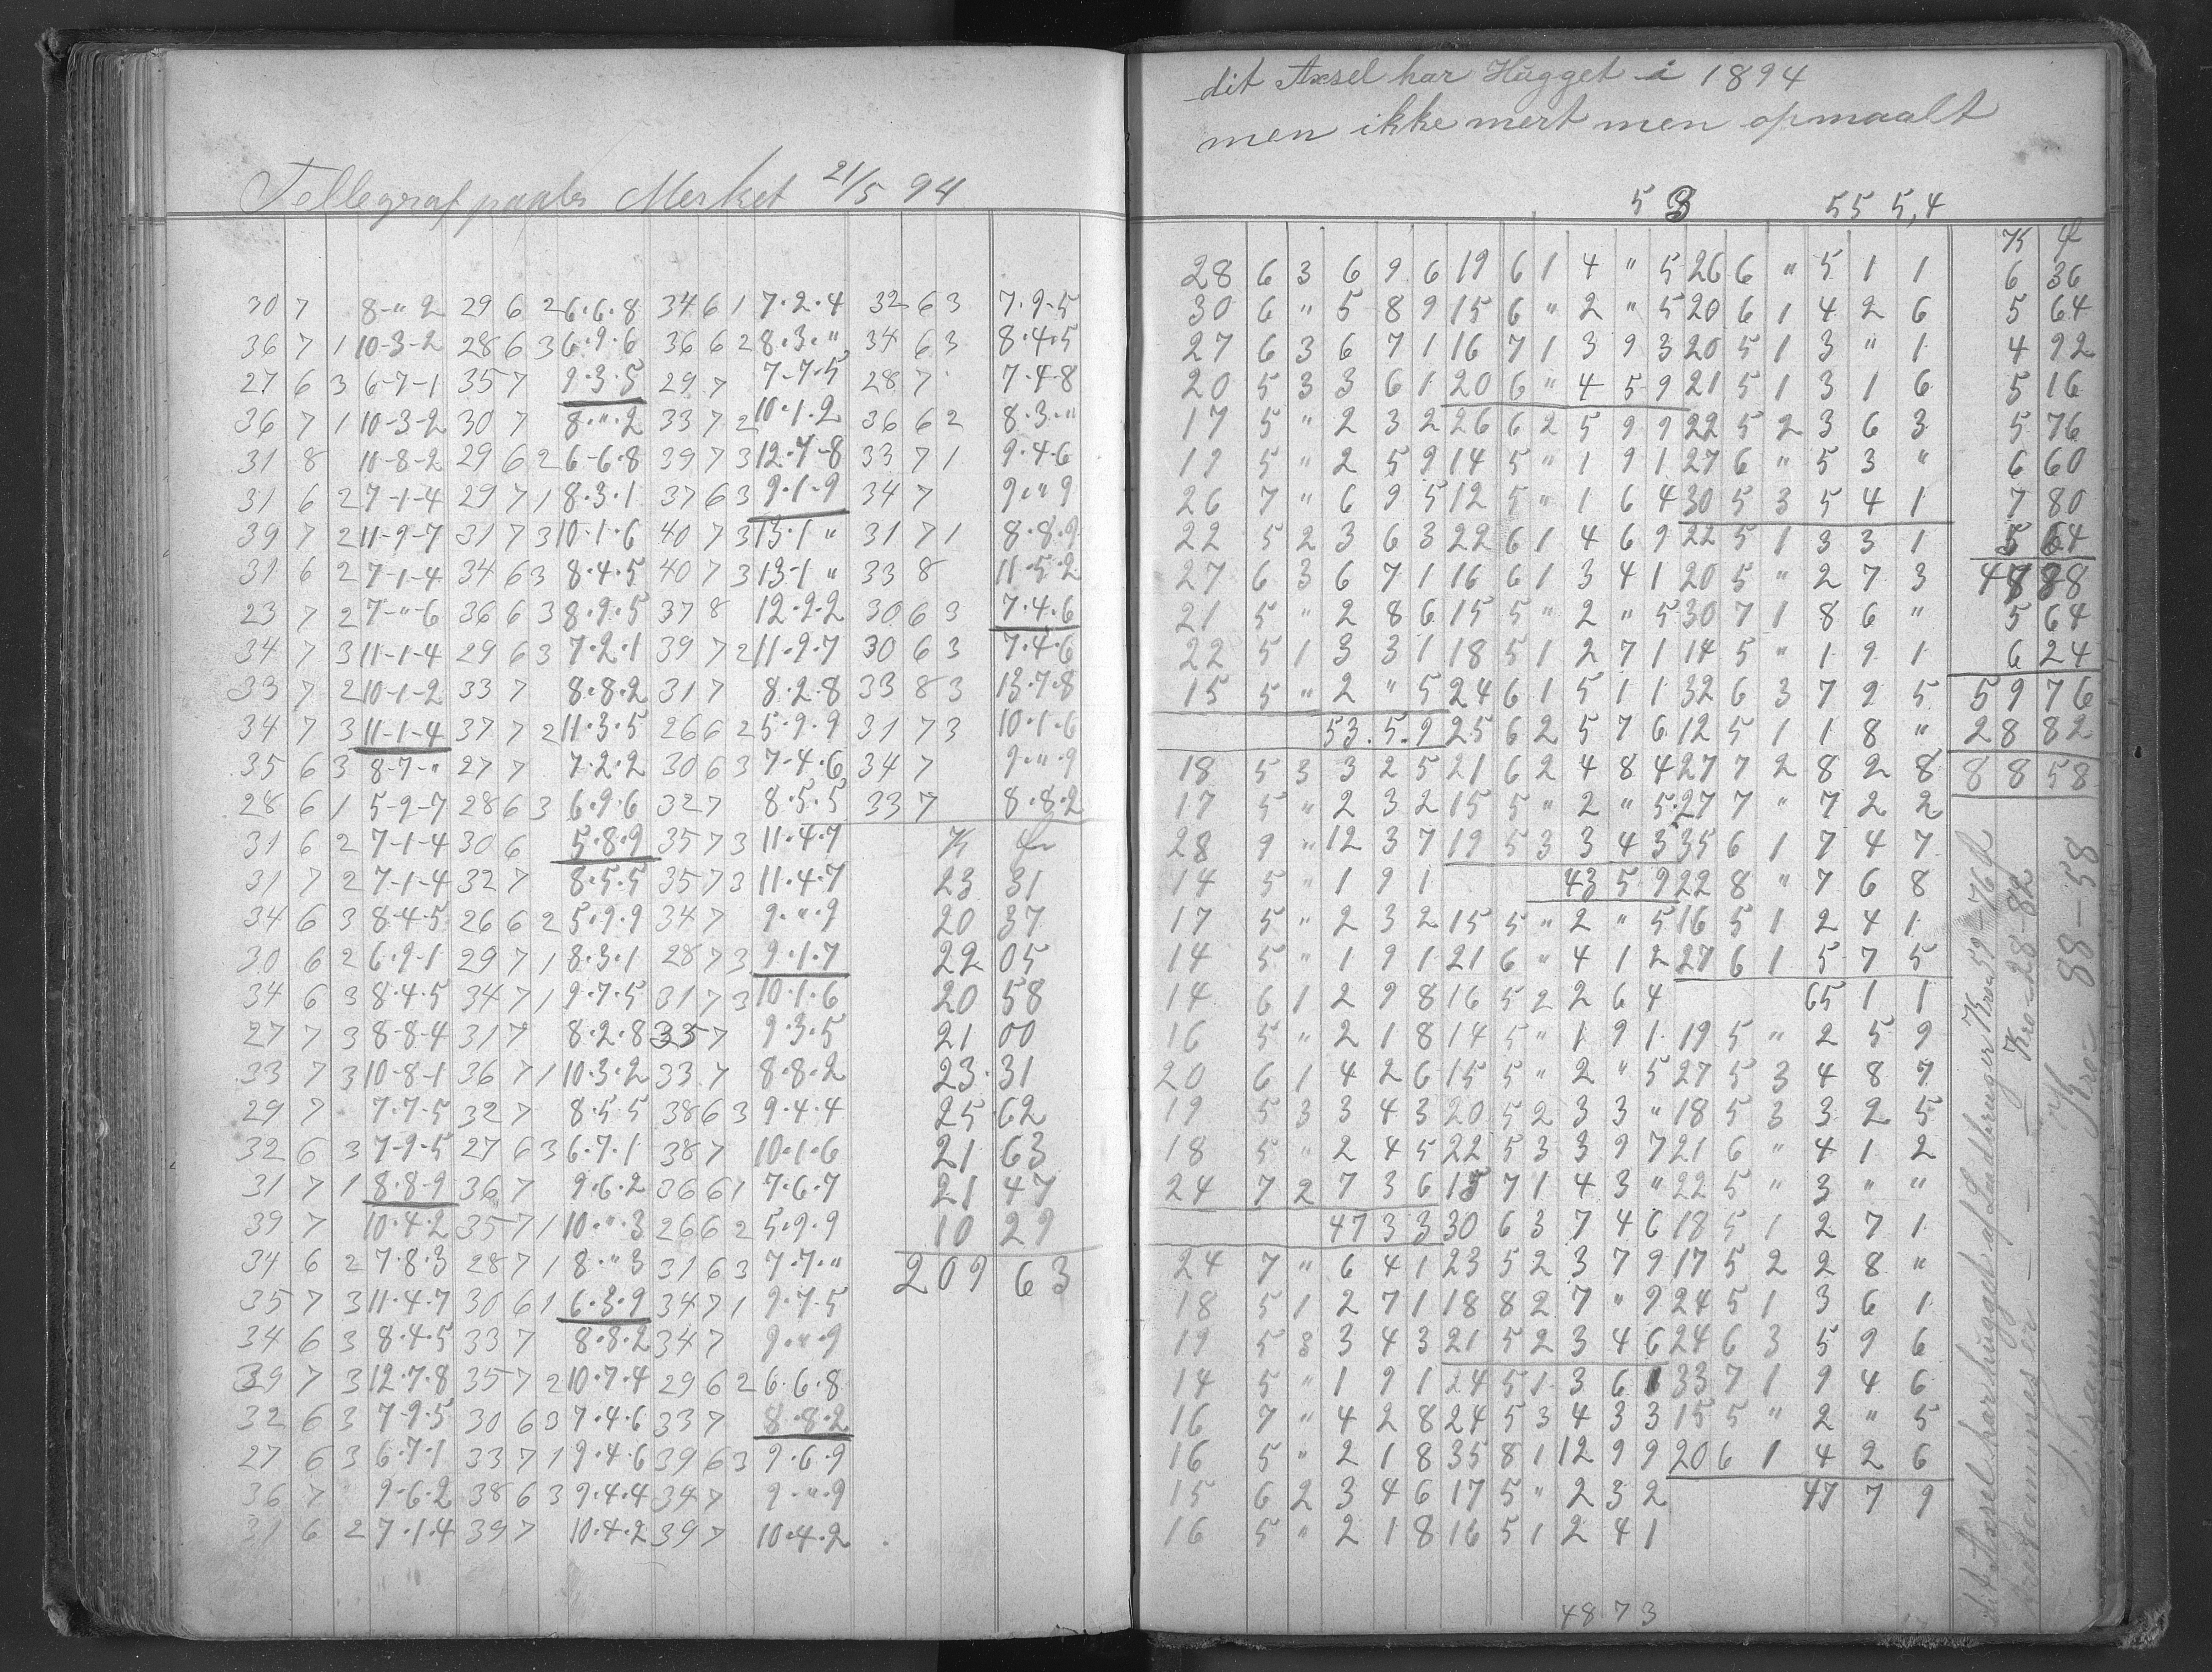 Tellegraf paaler Merket 21/5 94
30 7 8-"2 29 6 2 6.6.8 34 6 1 7.2.4 32 6 3 7.9-5
36 7 1 10-3-2 28 6 3 6.9.6 36 6 2 8.3." 34 6 3 8.4.5
27 6 3 6-7-1 35 7 9.3.5 29 7 7-7.5 28 7 7.4.8
36 7 1 10-3-2 30 7 8.".2 33 7 2 10.1.2 36 6 2 8.3."
31 8 11-8-2 29 6 2 6-6.8 39 7 3 12.7-8 33 7 1 9.4.6
31 6 2 7-1-4 29 7 1 8.3.1 37 6 3 9.1.9 34 7 9."9
39 7 2 11-9-7 31 7 3 10.1.6 40 7 3 13.1 " 31 7 1 8.8.9
31 6 2 7-1-4 34 6 3 8.4.5 40 7 3 13-1 " 33 8 11.5.2
23 7 2 7-"-6 36 6 3 8.9.5 37 8 12.9.2 30 6 3 7.4.6
34 7 3 11-1-4 29 6 3 7.2.1 39 7 2 11.9.7 30 6 3 7.4.6
33 7 2 10-1-2 33 7 8.8.2 31 7 8.2.8 33 8 3 13.7.8
34 7 3 11-1-4 37 7 2 11.3.5 26 6 2 5.9.9 31 7 3 10.1.6
35 6 3 8-7-" 27 7 7.2.2 30 6 3 7-4.6 34 7 9.".9
28 6 1 5-9-7 28 6 3 6.9.6 32 7 8.5.5 33 7 8.8.2
31 6 2 7-1-4 30 6 5.8.9 35 7 3 11.4.7
31 7 2 7-1-4 32 7 8.5.5 35 7 3 11.4.7 23 31
34 6 3 8-4-5 26 6 2 5.9.9 34 7 9.".9 20 37
30 6 2 6.9-1 29 7 1 8.3.1 28 7 3 9.1.7 22 05
34 6 3 8.4-5 34 7 1 9.7.5 31 7 3 10.1.6 20 58
27 7 3 8-8-4 31 7 8.2.8 33 5 7 9.3.5 21 00
33 7 3 10-8-1 36 7 1 10.3.2 33 7 8.8.2 23.31
29 7 7.7-5 32 7 8.5.5 38 6 3 9.4.4 25 62
32 6 3 7-9-5 27 6 3 6.7.1 38 7 10.1.6 21 63
31 7 1 8.8-9 36 7 9.6.2 36 6 1 7.6.7 21 47
39 7 10.4.2 35 7 1 10.".3 26 6 2 5.9.9 10 29
34 6 2 7.8.3 28 7 1 8.".3 31 6 3 7.7." 209 63
35 7 3 11.4.7 30 6 1 6.3.9 34 7 1 9.7.5
34 6 3 8.4.5 33 7 8.8.2 34 7 9.".9
39 7 3 12.7.8 35 7 2 10.7.4 29 6 2 6.6.8
32 6 3 7-9.5 30 6 3 7.4.6 33 7 8.8.2
27 6 3 6.7.1 33 7 1 9.4.6 39 6 3 9.6.9
36 7 9.6.2 38 6 3 9.4.4 34 7 9.".9
31 6 2 7.1.4 39 7 10.4.2 39 7 10.4.2
dit Axsel har Hugget i 1894
men ikke mert men opmaalt
5 55 5,4
K
28 6 3 6 9 6 19 6 1 4 " 5 26 6 " 5 1 1 6 36
30 6 " 5 8 9 15 6 " 2 " 5 20 6 1 4 2 6 5 64
27 6 3 6 7 1 16 7 1 3 9 3 20 5 1 3 " 1 4 92
20 5 3 3 6 1 20 6 " 4 5 9 21 5 1 3 1 6 5 16
17 5 " 2 3 2 26 6 2 5 9 9 22 5 2 3 6 3 5 76
19 5 " 2 5 9 14 5 " 1 9 1 27 6 " 5 3 " 6 60
26 7 " 6 9 5 12 5 " 1 6 4 30 5 3 5 4 1 7 80
22 5 2 3 6 3 22 6 1 4 6 9 22 5 1 3 3 1 5 64
27 6 3 6 7 1 16 6 1 3 4 1 20 5 " 2 7 3 47 88
21 5 " 2 8 6 15 5 " 2 " 5 30 7 1 8 6 " 5 64
22 5 1 3 3 1 18 5 1 2 7 1 14 5 " 1 9 1 6 24
15 5 " 2 " 5 24 6 1 5 1 1 32 6 3 7 9 5 59 76
53.5.9 25 6 2 5 7 6 12 5 1 1 8 " 28 82
18 5 3 3 2 5 21 6 2 4 8 4 27 7 2 8 2 8 88 58
17 5 " 2 3 2 15 5 " 2 " 5 27 7 " 7 2 2
28 9 " 12 3 7 19 5 3 3 4 3 35 6 1 7 4 7
14 5 " 1 9 1 43 5 9 22 8 " 7 6 8
17 5 " 2 3 2 15 5 " 2 " 5 16 5 1 2 4 1
14 5 " 1 9 1 21 6 " 4 1 2 27 6 1 5 7 5
14 6 1 2 9 8 16 5 2 2 6 4 65 1 1
16 5 " 2 1 8 14 5 " 1 9 1 19 5 " 2 5 9
20 6 1 4 2 6 15 5 " 2 " 5 27 5 3 4 8 7
19 5 3 3 4 3 20 5 2 3 3 " 18 5 3 3 2 5
18 5 " 2 4 5 22 5 3 3 9 7 21 6 " 4 1 2
24 7 2 7 3 6 15 7 1 4 3 " 22 5 " 3 " "
47 3 3 30 6 3 7 4 6 18 5 1 2 7 1
24 7 " 6 4 1 23 5 2 3 7 9 17 5 2 2 8 "
18 5 1 2 7 1 18 8 2 7 " 9 24 5 1 3 6 1
19 5 3 3 4 3 21 5 2 3 4 6 24 6 3 5 9 6
14 5 " 1 9 1 24 5 1 3 6 1 33 7 1 9 4 6
16 7 " 4 2 8 24 5 3 4 3 3 15 5 " 2 " 5
16 5 " 2 1 8 35 8 1 12 9 9 20 6 1 4 2 6
15 6 2 3 4 6 17 5 " 2 3 2 47 7 9
16 5 " 2 1 8 16 5 1 2 4 1
48 7 3
dit Axsel har hugget af Landbruger Kro 59-76
Kro 28-82
Kro 88-58